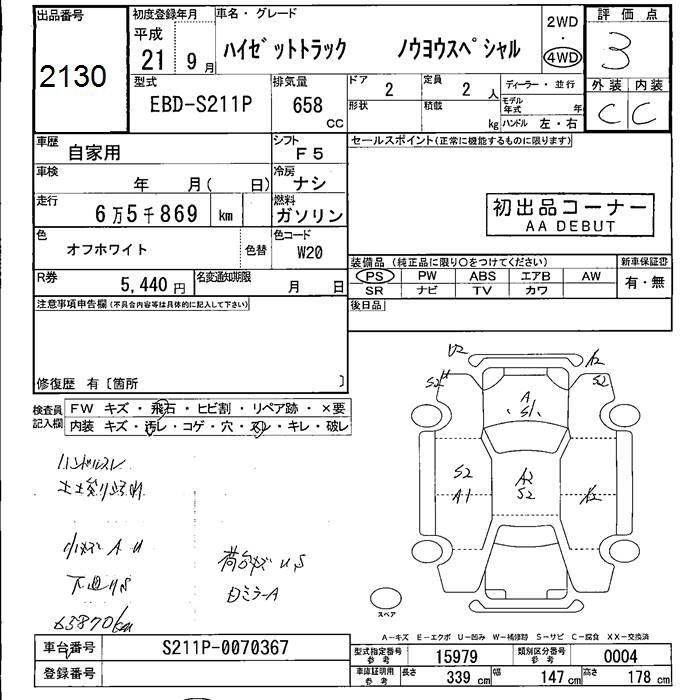 出品番号 初度登録年月 車名・グレード 2WD 評価点
2130 平成 21年 9月 ハイゼットトラック ノウヨウスペシャル 4WD 3
型式 排気量 ドア 定員 ディーラー・並行 外装 内装
EBD-S211P 658 CC 2 2人 モデル年式 年 C C
形状 積載 kg ハンドル 左・右
車歴 自家用 シフト F5 セールスポイント(正常に機能するものに限ります)
車検 年 月( 日) 冷房 ナシ
走行 6万5千869 km 燃料 ガソリン 初出品コーナー
AA DEBUT
色 オフホワイト 色替 色コード W20
装備品(純正品に限り○をつけてください) 新車保証書
R券 5,440円 名変通知期限 月 日 PS PW ABS エアB AW 有・無
SR ナビ TV カワ
注意事項申告欄(不具合内容等は具体的に記入して下さい) 後日品
修復歴 有〔箇所 〕
検査員記入欄 FW キズ・飛石・ヒビ割・リペア跡・×要
内装 キズ・汚レ・コゲ・穴・スレ・キレ・破レ
U2 A2
S2 U S2
A
S1
ハンドルスレ
S2 A2 A2
A1 S2
小キズ A U
荷台キズ U S
下廻りS
ミラーA
63870km
スペア
A-キズ E-エクボ U-凹み W-補修跡 S-サビ C-腐食 XX-交換済
車台番号 S211P-0070367 型式指定番号 参考 15979 類別区分番号 参考 0004
登録番号 車庫証明用 参考 長さ 339 cm 幅 147 cm 高さ 178 cm